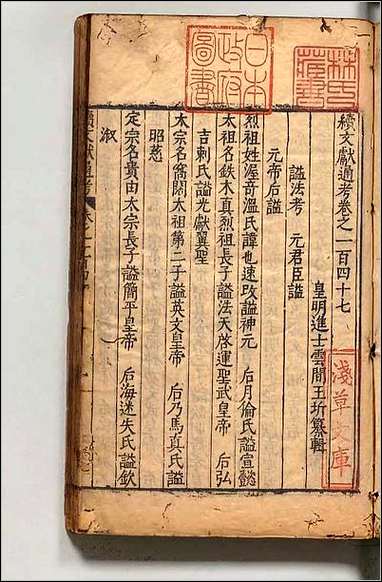 續文獻通考卷之一百四十七
皇明進士雲間王圻纂輯
諡法考　元君臣諡
元帝后諡
烈祖姓渥奇溫氏諱也速改諡神元　后月倫氏諡宣懿
太祖名鉄木真烈祖長子諡法天啓運聖武皇帝　后弘
吉剌氏諡光獻翼聖
太宗名窩闊太祖第二子諡英文皇帝　后乃馬真氏諡
昭慈
定宗名貴由太宗長子諡簡平皇帝　后海迷失氏諡欽
淑
續文獻通考
日本
政府
圖書
林氏
藏書
淺草文庫